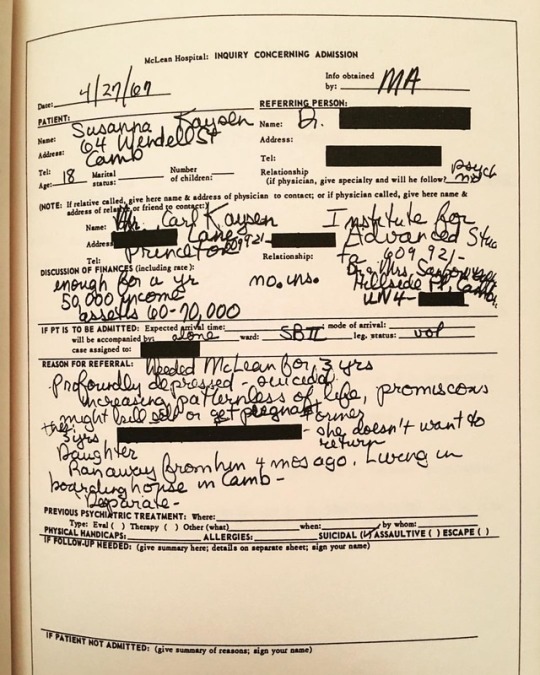 McLean Hospital: INQUIRY CONCERNING ADMISSION
Date: 4/27/67
Info obtained by: MA
PATIENT:
Name: Susanna Kaysen
Address: 64 Wendell St
Camb
Tel:
Age: 18 Marital status: Number of children:
REFERRING PERSON:
Name: Dr.
Address:
Tel:
Relationship
(if physician, give specialty and will he follow? psych
no
(NOTE: If relative called, give here name & address of physician to contact; or if physician called, give here name &
address of relative or friend to contact:)
Name: Mr. Carl Kaysen
Address: Lane
Tel: Princeton 609 921-
Relationship:
Institute for
Advanced
609 921-
Dr & Mrs
Hillside Pl, Camb
UN4-
DISCUSSION OF FINANCES (including rate):
enough for a yr no. ins.
50,000 income
assets 60-70,000
IF PT IS TO BE ADMITTED: Expected arrival time: mode of arrival:
will be accompanied by: alone ward: SB II leg. status: vol
case assigned to:
REASON FOR REFERRAL: Needed McLean for 3 yrs
Profoundly depressed - suicidal
increasing patternless of life, promiscous
might kill self or get pregnant
3 yrs - she doesn't want to
return
Daughter
Ran away from him 4 mos ago. Living in
boarding house in Camb -
Desparate -
PREVIOUS PSYCHIATRIC TREATMENT: Where:
Type: Eval ( ) Therapy ( ) Other (what) when: by whom:
PHYSICAL HANDICAPS: ALLERGIES: SUICIDAL (✓) ASSAULTIVE ( ) ESCAPE ( )
IF FOLLOW-UP NEEDED: (give summary here; details on separate sheet; sign your name)
IF PATIENT NOT ADMITTED: (give summary of reasons; sign your name)